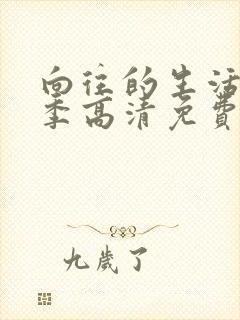 向往的生活
季高清免费
九歲了